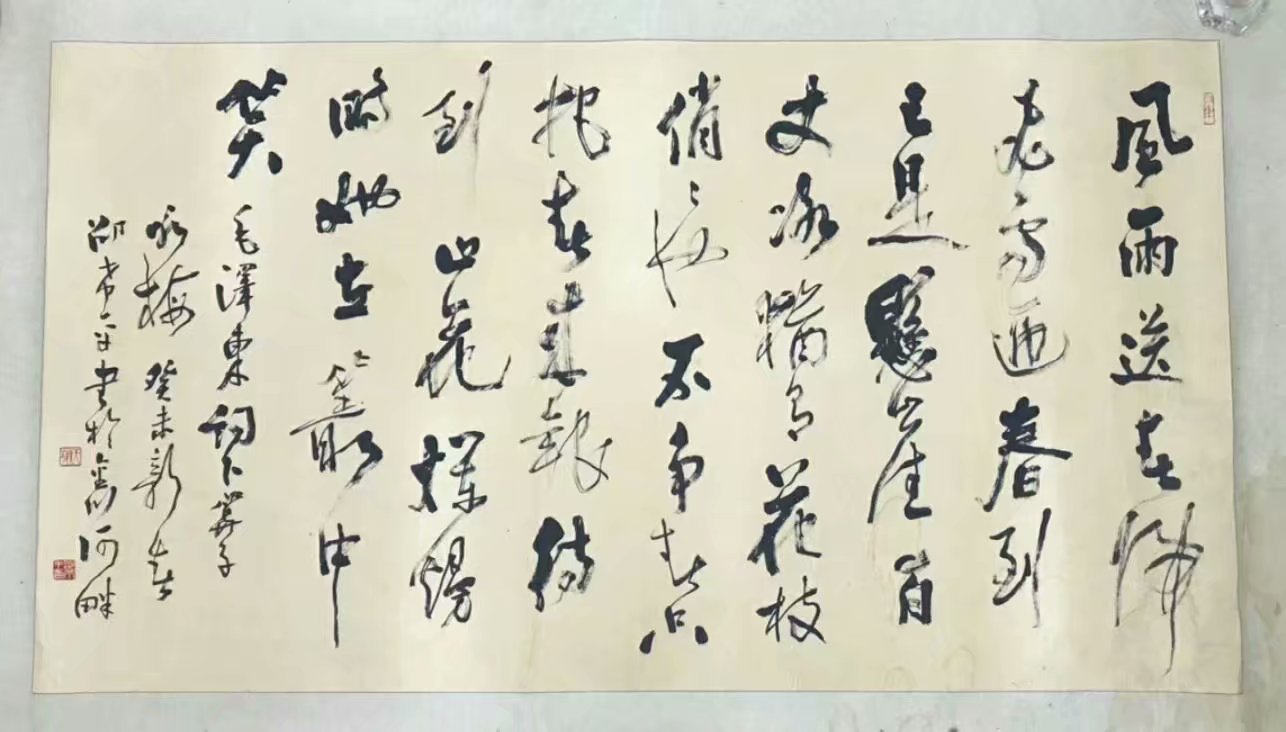 風雨送春歸
飛雪迎春到
已是懸崖百
丈冰猶有花枝
俏〻也不争春只
把春来報待
到山花爛熳
時她在叢中
笑 毛澤東詞卜算子
咏梅 癸未新春
邵平书於河畔